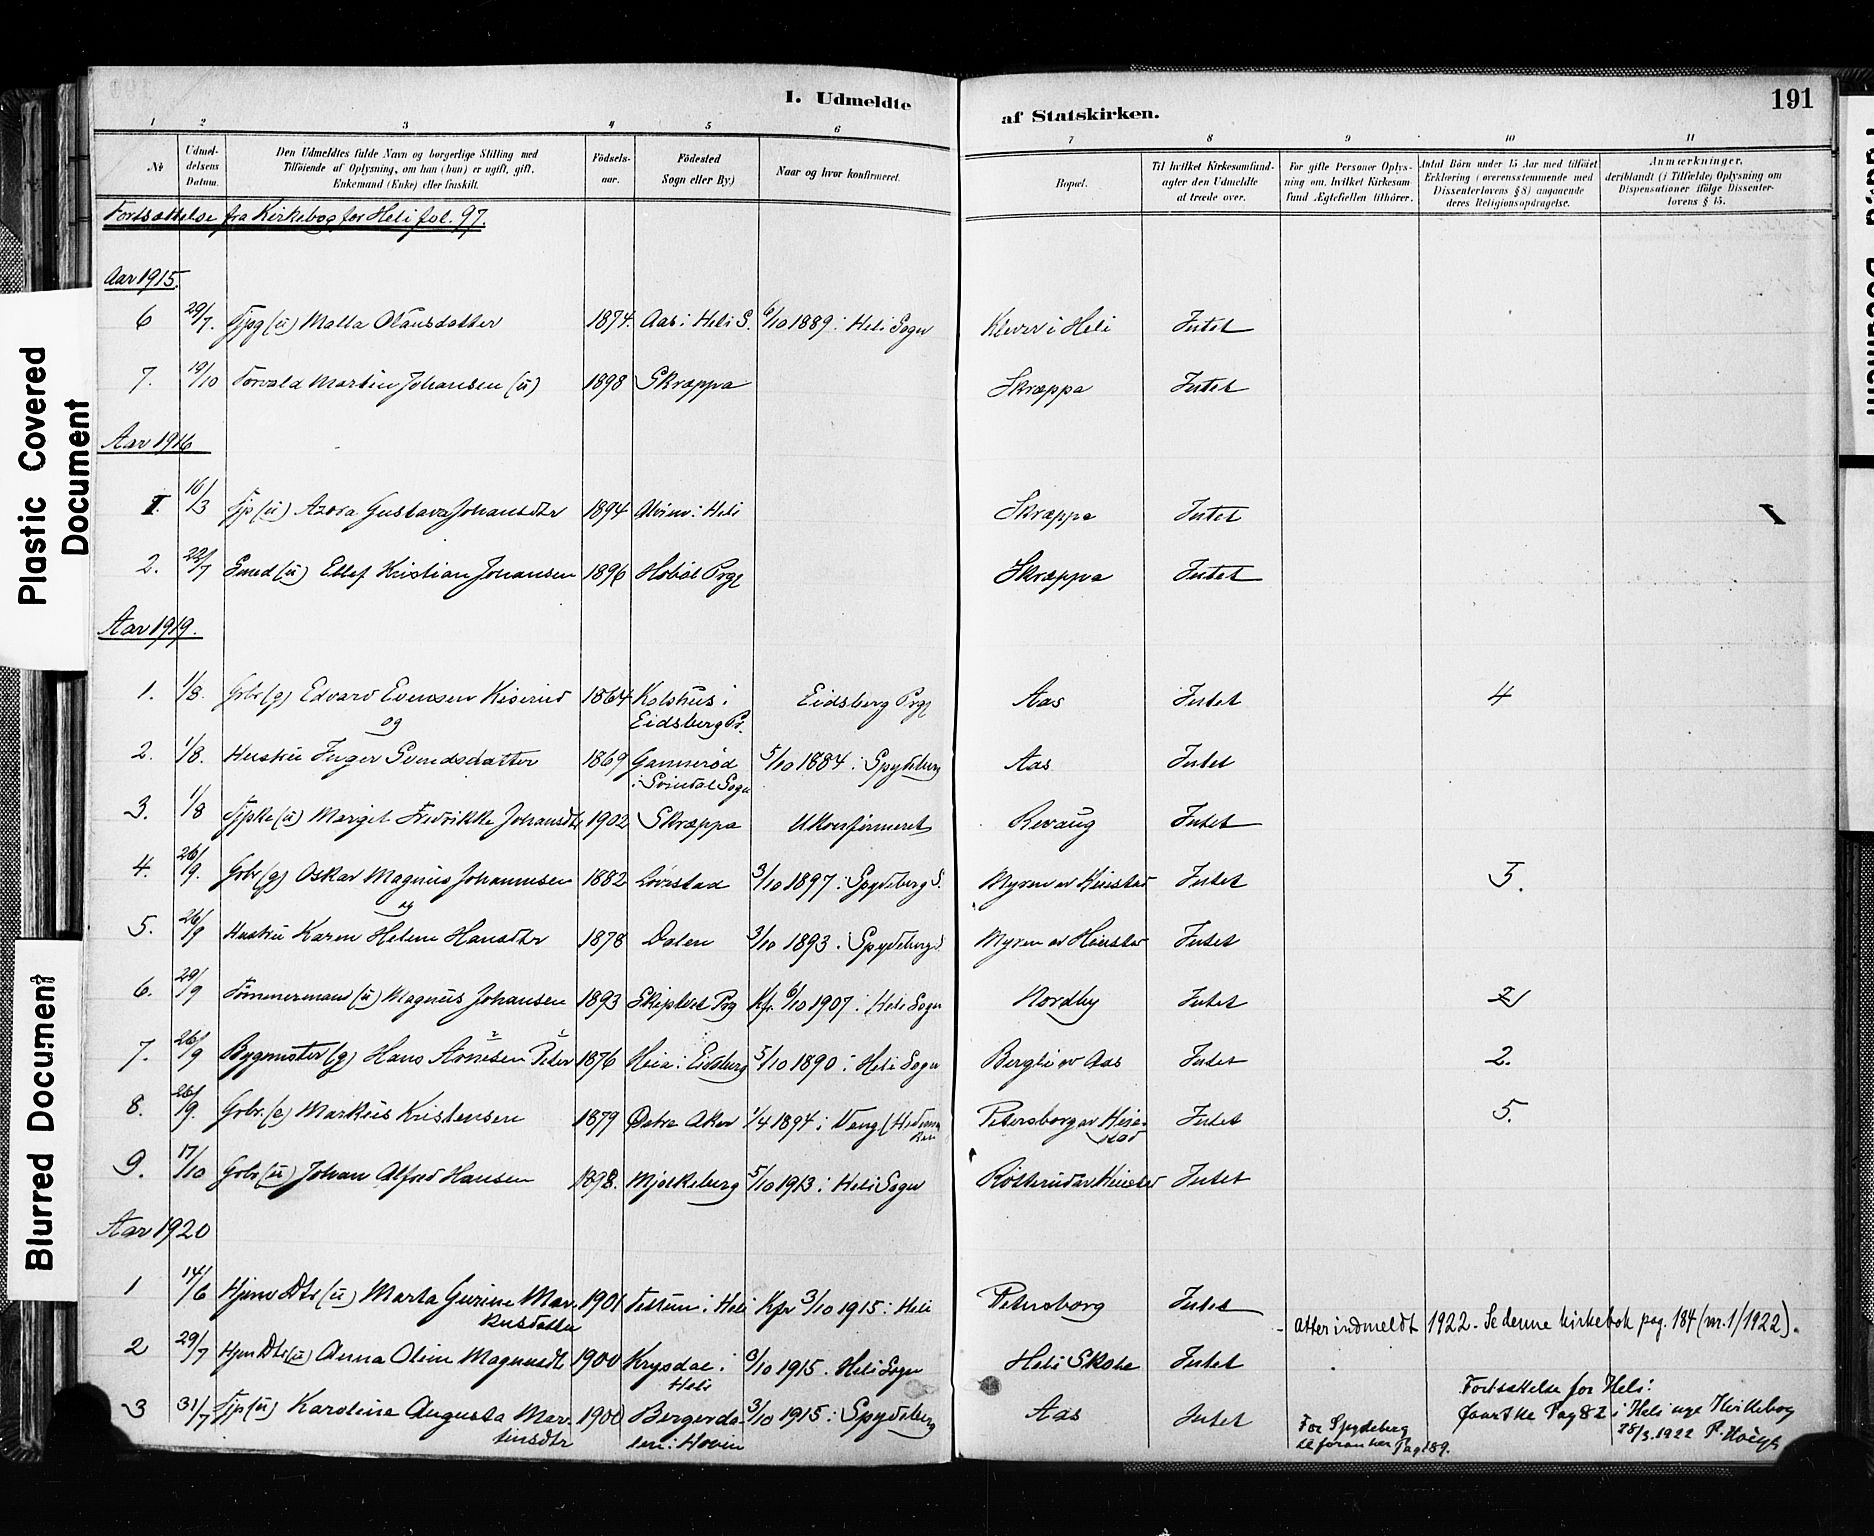 I. Udmeldte
af Statskirken.
191
1 2 3 4 5 6 7 8 9 10 11
No
Udmel-
delsens
Datum.
Den Udmeldtes fulde Navn og borgerlige Stilling med
Tilföiende af Oplysning, om han (hun) er ugift, gift,
Enkemand (Enke) eller fraskilt.
Födsels-
aar.
Födested
Sogn eller By.)
Naar og hvor konfirmeret.
Bopæl.
Til hvilket Kirkesamfund-
agter den Udmeldte
at træde over.
For gifte Personer Oplys-
ning om, hvilket Kirkesam-
fund Ægtefællen tilhörer.
Antal Börn under 15 Aar med tilföiet
Erklæring (overensstemmende med
Dissenterlovens § 8) angaaende
deres Religionsopdragelse.
Anmærkninger,
deriblandt (i Tilfælde) Oplysning om
Dispensationer ifölge Dissenter-
lovens § 15.
Fortsættelse fra Kirkebog for Heli fol. 97.
Aar 1915.
6 29/7. Tjpg (u) Malla Olausdatter 1874. Aas i Heli S. 6/10 1889 i Heli Sogn Klever i Heli Intet
7. 19/10 Torvald Martin Johansen (u) 1898 Skræppa Skræppa Intet
Aar 1916
1. 16/3 Tjp (u) Azora Gustava Johansdtr 1894 i Heli Skræppa Intet
2. 22/7 Smed (u) Ellef Kristian Johansen 1896 Hobøl Prgj Skræppa Intet
Aar 1919.
1. 1/8. Grbr (g) Edvard Evensen 1864 Kolshus i Eidsberg Prgj Aas Intet 4
og
Eidsberg Pr.
2. 1/8. Hustru Inger Svendsdatter 1869 Gammerød 5/10 1884 i Spydeberg Aas Intet
i Svindal Sogn
3. 1/8 Tjpke (u) Margit Fredrikke Johansdtr 1902 Skræppa Ukonfirmeret Revaug Intet
4. 26/9. Grbr (g) Oskar Magnus Johannesen 1882 Lovestad 3/10 1897 i Spydeberg S. Myren av Intet 5.
og
5. 26/9 Hustru Karen Helene Hansdtr 1878 Dalen 3/10 1893 i Spydeberg S. Myren av Intet
6. 29/9 Tømmermand (u) Magnus Johansen 1893 Skiptvet Prg Kfr 6/10 1907 i Heli Sogn Nordby Intet 2
7. 26/9 Bygmester (g) Hans Arnesen Peder 1876 Heia i Eidsberg 5/10 1890 i Heli Sogn Bergli av Aas Intet 2.
8. 26/9. Grbr. (e) Markus Kristensen 1879 Østre Aker 1/4 1894 i Vang (Hedemar
ken
Petersborg av
stad
Intet 5.
9. 17/10 Grbr (u) Johan Alfred Hansen 1898. Mjølkeberg 5/10 1913 i Heli Sogn Intet
Aar 1920
1 14/6 Hjem Dtr (u) Marta Gurine Mar- 1901 i Heli Kfr 3/10 1915 i Heli Petersborg Intet
kusdatter
- Atter indmeldt 1922. Se denne kirkebok pag. 184 (nr. 1/1922).
2 29/7 Hjem Dtr (u) Anna Oline Magnusdtr 1900 Krysdal i 3/10 1915. Heli Sogn Heli Skole Intet
Heli
3 31/7 Tjp (u) Karoline Augusta Mar- 1900 Bergerda- 3/10 1915 i Spydeberg Aas Intet
tinsdtr
len i Hovin
For Spydeberg
se foran her Pag 189.
Fortsættelse for Heli:
Pag 82 i Heli nye Kirkebog
28/3. 1922
Plastic Covered
Document
Blurred Document